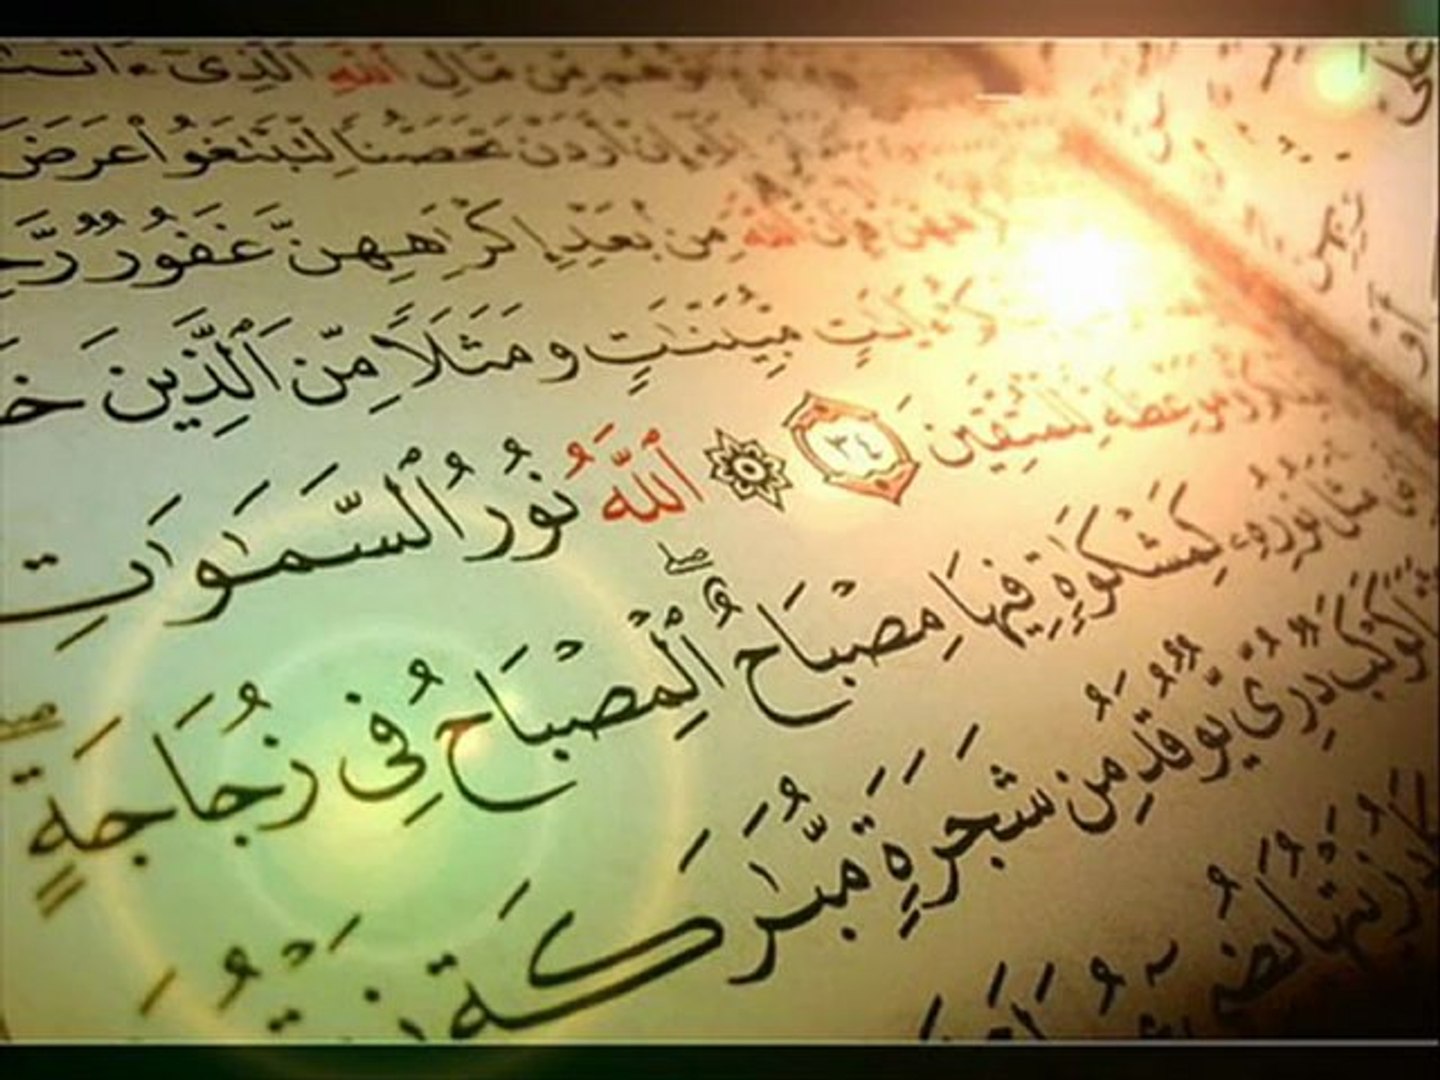 مِّن مَّالِ ٱللَّهِ ٱلَّذِىٓ ءَاتَىٰ
إِنْ أَرَدْنَ تَحَصُّنًا لِّتَبْتَغُوا۟ عَرَضَ
فَإِنَّ ٱللَّهَ مِنۢ بَعْدِ إِكْرَٰهِهِنَّ غَفُورٌ رَّح
ءَايَٰتٍ مُّبَيِّنَٰتٍ وَمَثَلًا مِّنَ ٱلَّذِينَ خَ
وَمَوْعِظَةً لِّلْمُتَّقِينَ ٣٤ ۞ ٱللَّهُ نُورُ ٱلسَّمَٰوَٰتِ
مَثَلُ نُورِهِۦ كَمِشْكَوٰةٍ فِيهَا مِصْبَاحٌ ۖ ٱلْمِصْبَاحُ فِى زُجَاجَةٍ ۖ
كَوْكَبٌ دُرِّىٌّ يُوقَدُ مِن شَجَرَةٍ مُّبَٰرَكَةٍ
زَيْتُهَا يُضِىٓءُ